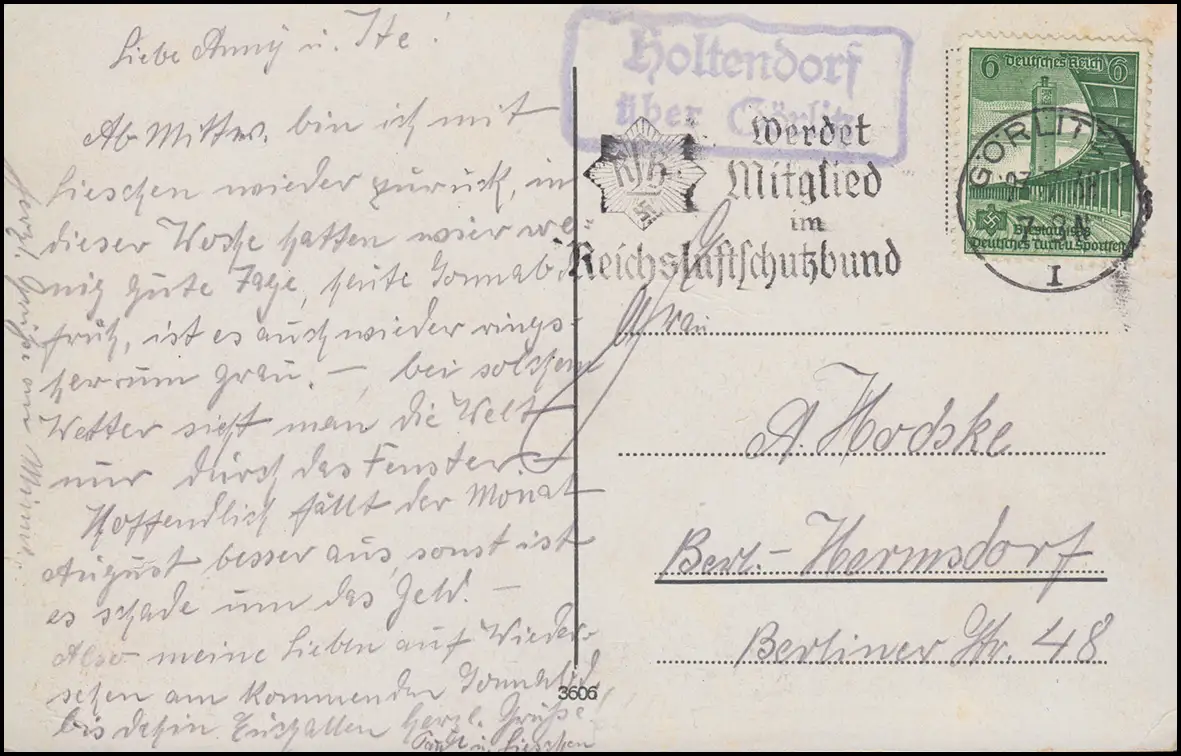 Liebe Anny u. Ite!
Ab Mittw. bin ich mit
Lieschen wieder zurück, in
dieser Woche hatten wier we-
nig gute Tage, heute Sonnab.
früh, ist es auch wieder rings-
herrum grau. –, bei solchem
Wetter sieht man die Welt
nur durch das Fenster.
Hoffendlich fällt der Monat
August besser aus, sonst ist
es schade um das Geld. –
Also meine Lieben auf Wieder-
sehen am kommenden Sonnabd,
bis dahin herzl. Grüße
u. Lieschen
Herzl. Grüße
Holtendorf
über Görlitz
Werdet
Mitglied
im
Reichsluftschutzbund
RLB
6 Deutsches Reich 6
Breslau 1938
Deutsches Turn u. Sportfest
GÖRLITZ
1
Frau
A. Hodske
Berl.- Hermsdorf
Berliner Str. 48
3606